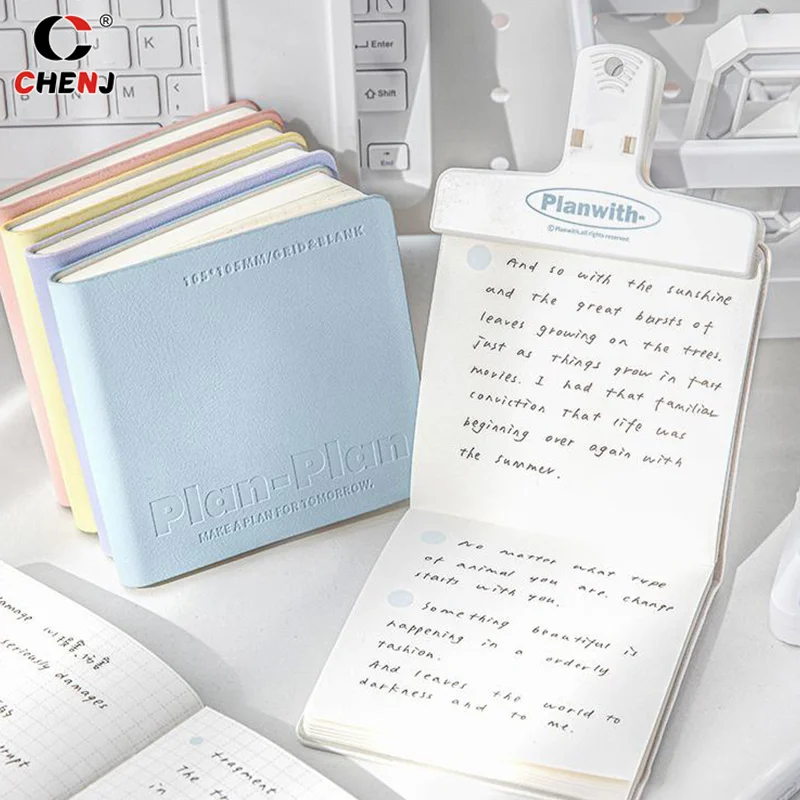 CHENJ
®
K
L
Enter
Shift
End
N
M
105*105MM/GRID&BLANK
Plan-Plan
MAKE A PLAN FOR TOMORROW.
Planwith-
©Planwith,all rights reserved
And so with the sunshine
and The great bursts of
leaves growing on the trees.
just as Things grow in fast
movies. I had that familiar
conviction That life was
beginning over again with
the summer.
No matter what type
of animal you are. change
starts with you.
Something beautiful is
happening in a orderly
fashion.
And leaves the world to
darkness and to me.
seriously damages
fragment
The
in